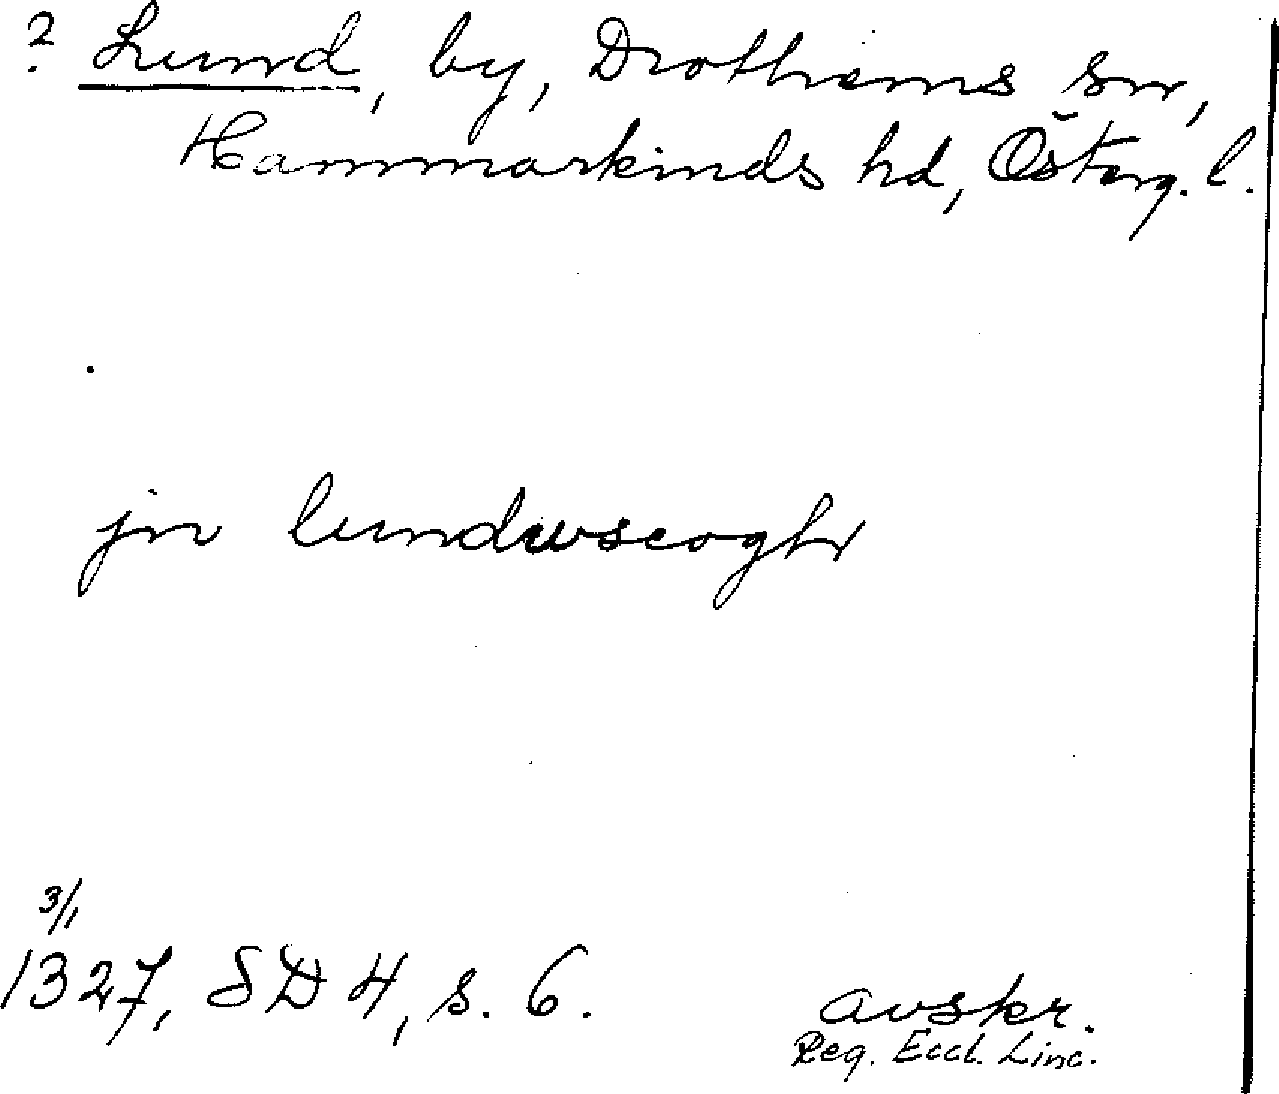 ? Lund, by, Drothems sn,
Hammarkinds hd, Österg. l.
jn lundwscoghr
3/1
1327, SD 4, s. 6.
avskr.
Reg. Eccl. Linc.